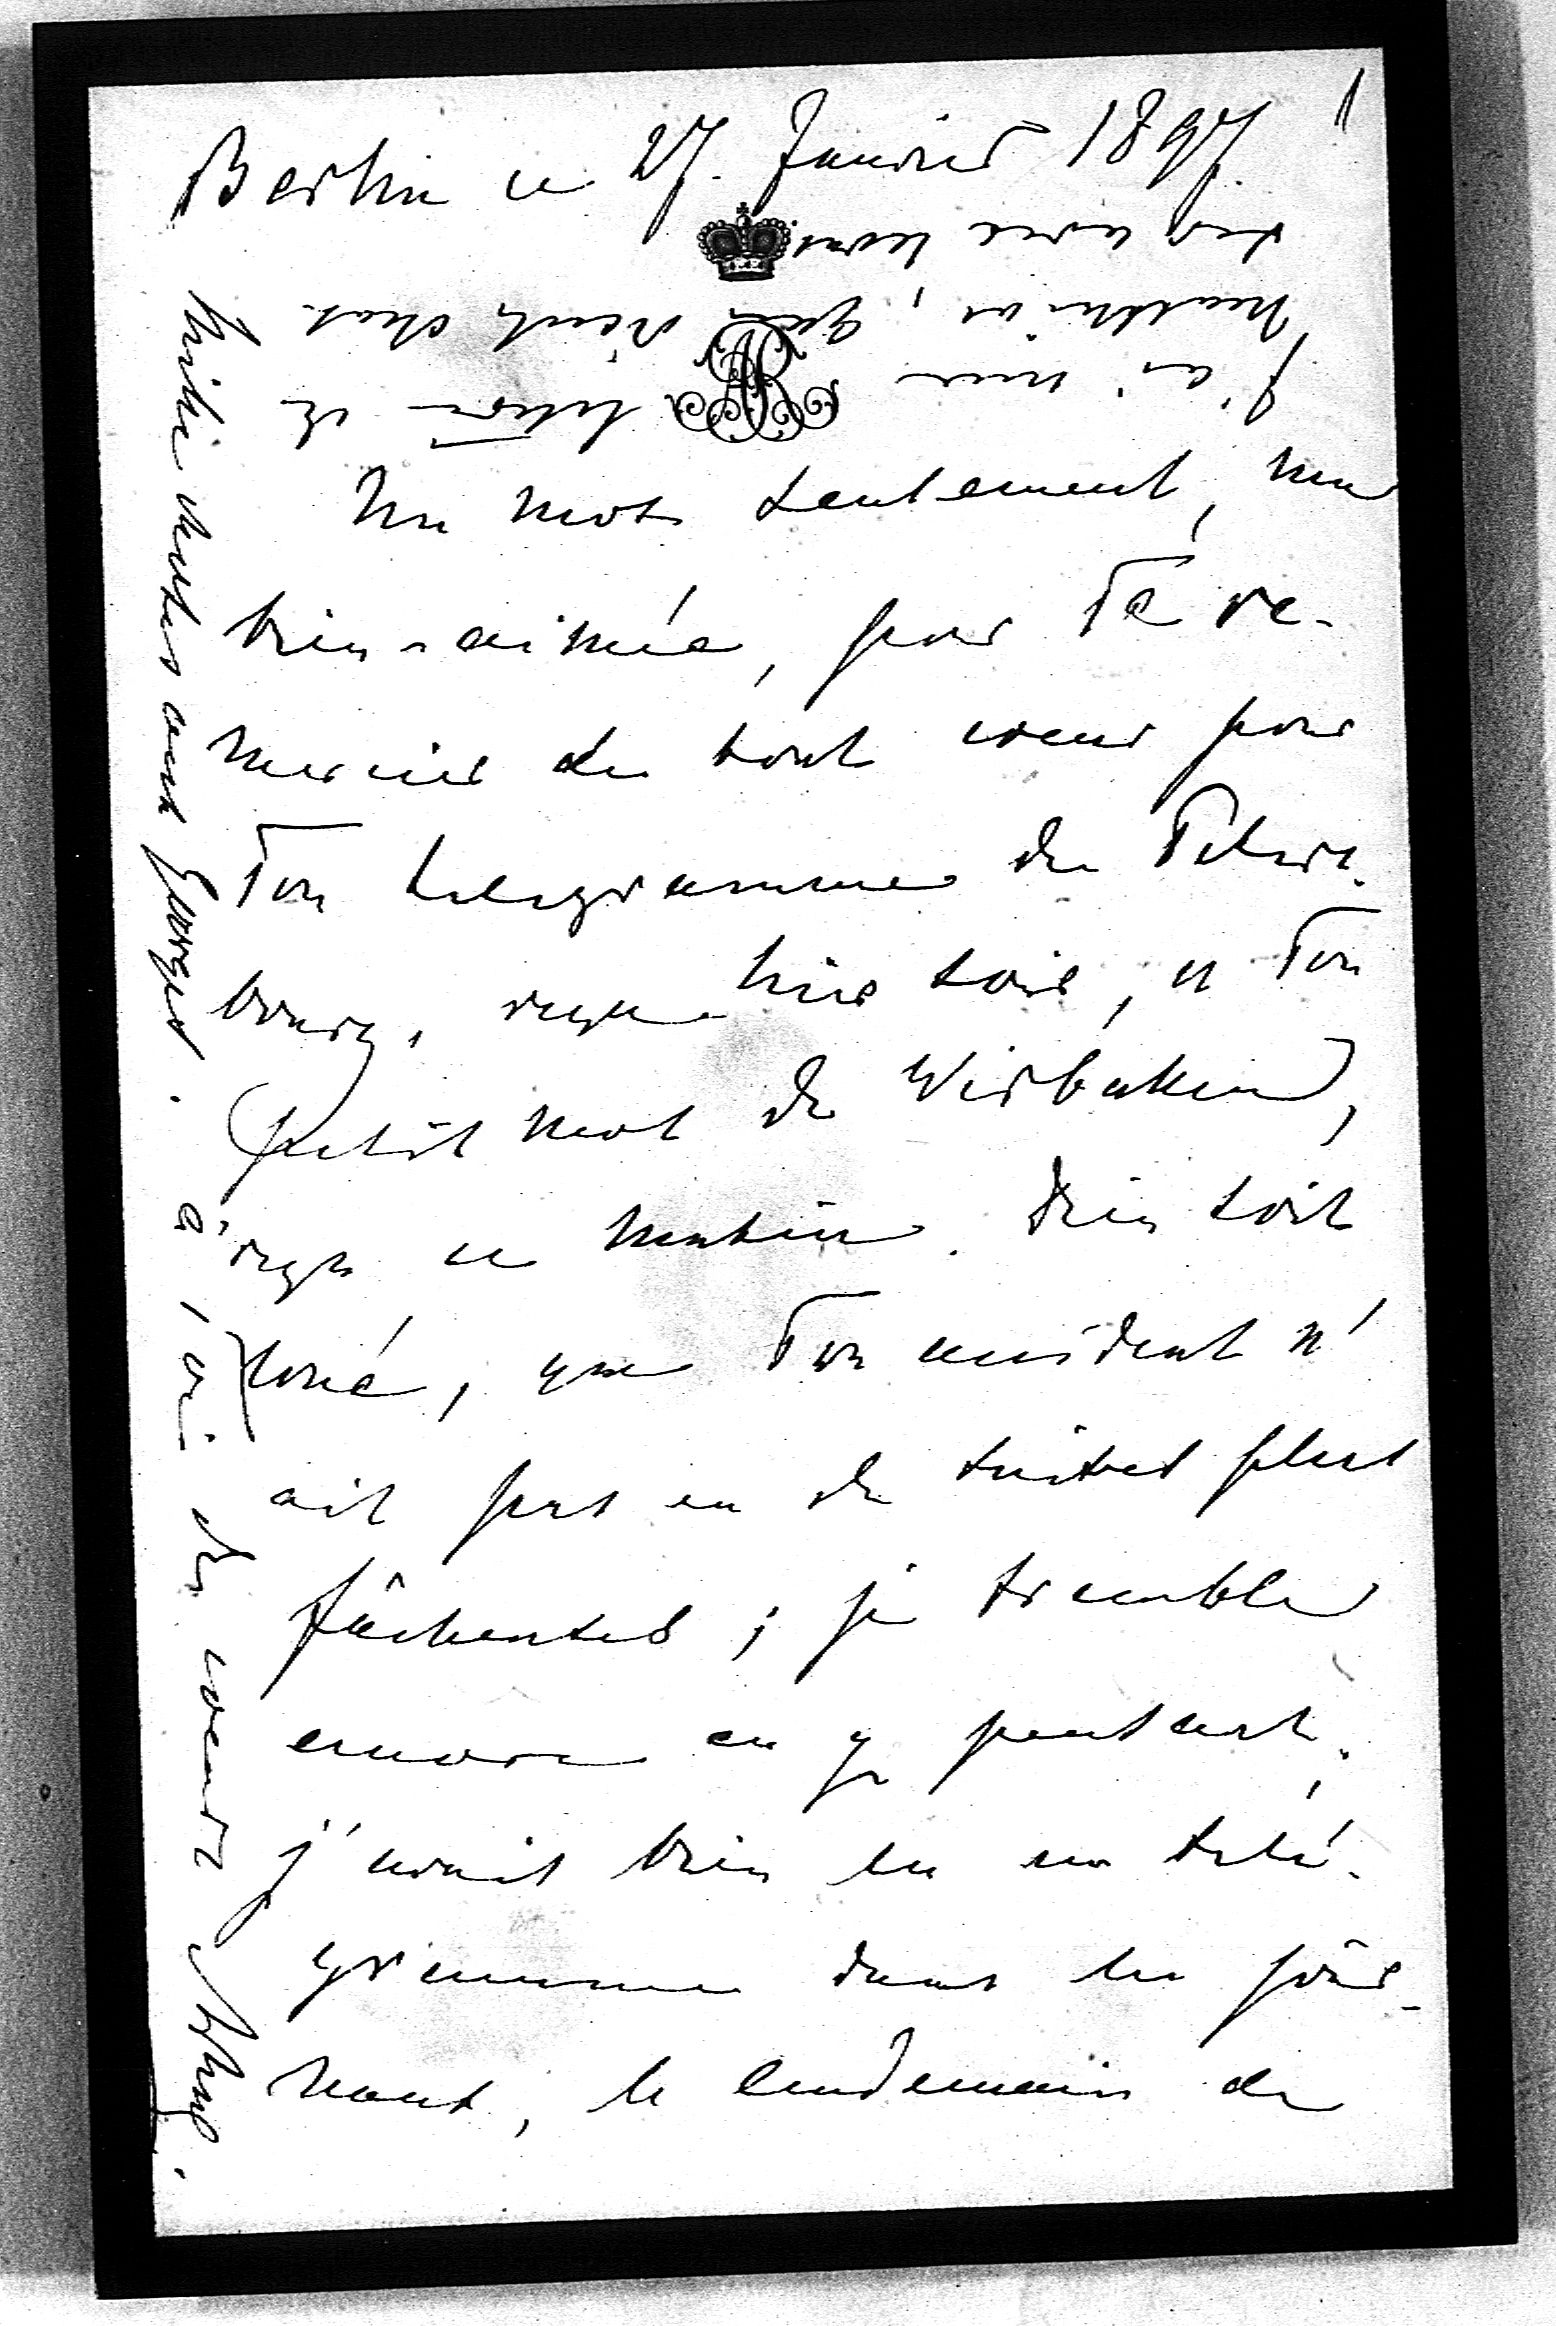 Berlin ce 27. Janvier 1897.
Un mot seulement, ma
bien-aimée, pour Te re-
mercier de tout coeur pour
Ton telegramme de Peters-
bourg, reçu hier soir, et Ton
petit mot de Wirballen,
reçu ce matin. Dieu soit
loué, que Ton accident n'
ait pas eu de suites plus
fâcheuses; je tremble
encore en y pensant,
j'avais bien lu un télé-
gramme dans les jour-
naux, le lendemain de
J'ai mon et
, que
avec nous
Mille choses aux Georges.
à Toi de coeur